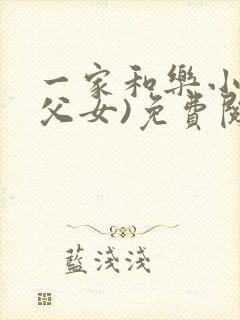 一家和樂小
父女)免費閱
藍淺淺